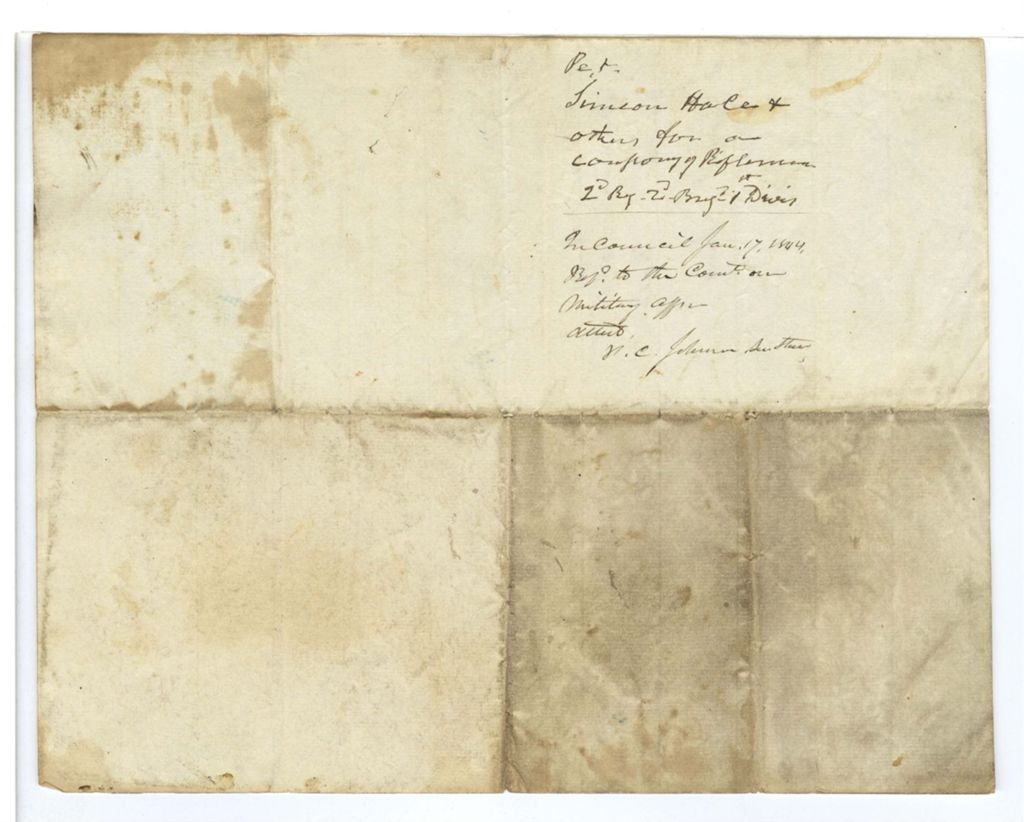 Pet.
Simeon Hale &
others for a
company of Riflemen
2d Reg. 2d Brigd 1st Divis
In Council Jan. 17, 1844,
Refd. to the Comt. on
Military Affrs
Attest,
J. C. Johnson